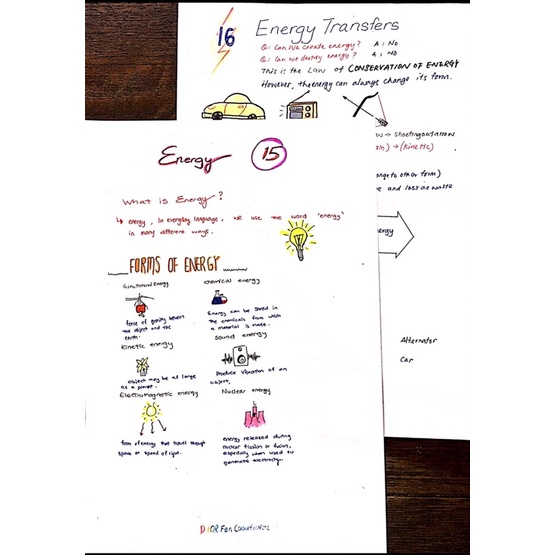 16 Energy Transfers
Q: Can we create energy? A: No
Q: Can we destroy energy? A: No
This is the Law of CONSERVATION OF ENERGY
However, the energy can always change its form.
→ shooting out arrow
→ (kinetic)
to other form)
and loss as waste
Alternator
Car
Energy 15
What is Energy?
↳ energy, in everyday language, we use the word "energy"
in many different ways.
FORMS OF ENERGY
Gravitational Energy
force of gravity between
the object and the
earth.
chemical energy
Energy can be stored in
the chemicals from which
a material is made.
Kinetic energy
object may be as large
as a
Sound energy
Produce vibration of an
object.
Electromagnetic energy
form of energy that travel through
space at speed of light.
Nuclear energy
energy released during
nuclear fission or fusion,
especially when used to
generate electricity.